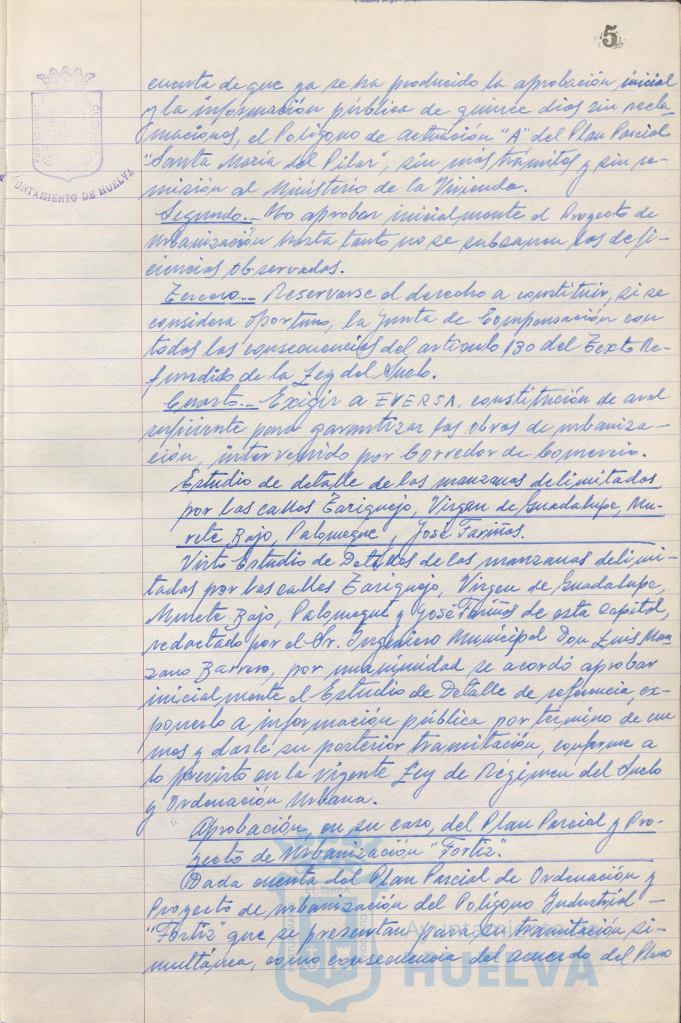 5
cuenta de que ya se ha producido la aprobación inicial
y la información pública de quince dias sin recla-
maciones, el Polígono de actuación "A" del Plan Parcial
"Santa María del Pilar", sin más trámites y sin re-
misión al Ministerio de la Vivienda.
Segundo.- No aprobar inicialmente el Proyecto de
Urbanización hasta tanto no se subsanen las defi-
ciencias observadas.
Tercero.- Reservarse el derecho a constituir, si se
considera oportuno, la Junta de Compensación con
todas las consecuencias del articulo 130 del Texto Re-
fundido de la Ley del Suelo.
Cuarto.- Exigir a EVERSA, constitución de aval
suficiente para garantizar las obras de urbaniza-
ción, intervenido por Corredor de Comercio.
Estudio de detalle de las manzanas delimitadas
por las calles Tariquejo, Virgen de Guadalupe, Mu-
rete Bajo, Palomeque y José Fariñas.
Visto Estudio de Detalles de las manzanas delimi-
tadas por las calles Tariquejo, Virgen de Guadalupe,
Murete Bajo, Palomeque y José Fariñas de esta Capital,
redactado por el Sr. Ingeniero Municipal Don Luis Man-
zano Barrero, por unanimidad se acordó aprobar
inicialmente el Estudio de Detalle de referencia, ex-
ponerlo a información pública por término de un
mes y darle su posterior tramitación, conforme a
lo previsto en la vigente Ley de Régimen del Suelo
y Ordenación Urbana.
Aprobación, en su caso, del Plan Parcial y Pro-
yecto de Urbanización "Fortiz".
Dada cuenta del Plan Parcial de Ordenación y
Proyecto de urbanización del Polígono Industrial
"Fortiz" que se presentan para su tramitación si-
multánea, como consecuencia del acuerdo del Pleno
AYUNTAMIENTO DE HUELVA
HUELVA